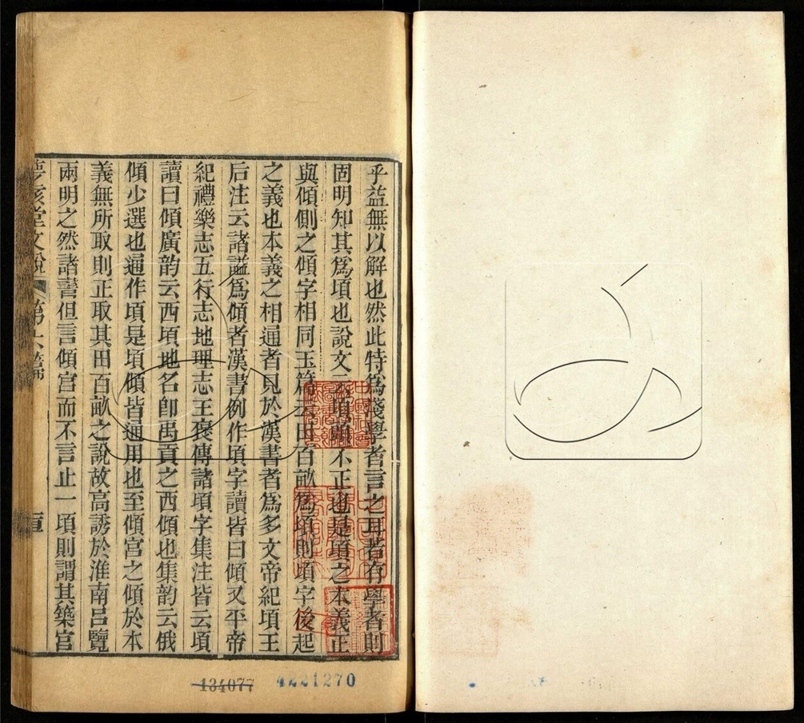 乎益無以解也然此特爲淺學者言之耳若存學者則
固明知其爲頃也說文云頃頭不正也是頃之本義正
與傾側之傾字相同玉篇云田百畝爲頃則頃字後起
之義也本義之相通者見於漢書者爲多文帝紀頃王
后注云諸謚爲傾者漢書例作頃字讀皆曰傾又平帝
紀禮樂志五行志地理志王褒傳諸頃字集注皆云頃
讀曰傾廣韵云西頃地名卽禹貢之西傾也集韵云俄
傾少選也通作頃是頃傾皆通用也至傾宮之傾於本
義無所取則正取其田百畝之說故高誘於淮南呂覽
兩明之然諸書但言傾宮而不言止一頃則謂其築宮
夢陔堂文說 第六篇
134077
4221270